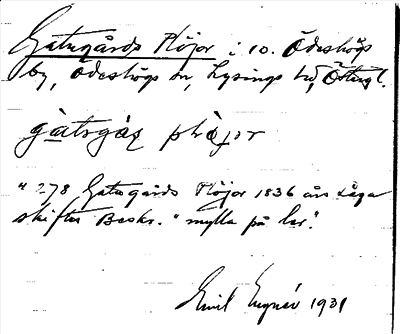 Gatugårds Plöjor i 10. Ödeshögs
by, Ödeshögs sn, Lysings hd, Östergl.
gàtrgàṣ plǿjor
"278 Gatugårds Plöjor 1836 års Laga
skiftes Beskr. "mylla på ler".
Emil 1931